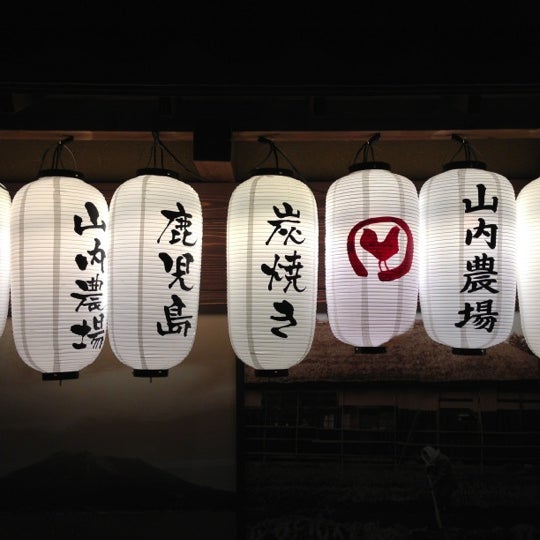 山内農場
鹿児島
炭焼き
山内農場